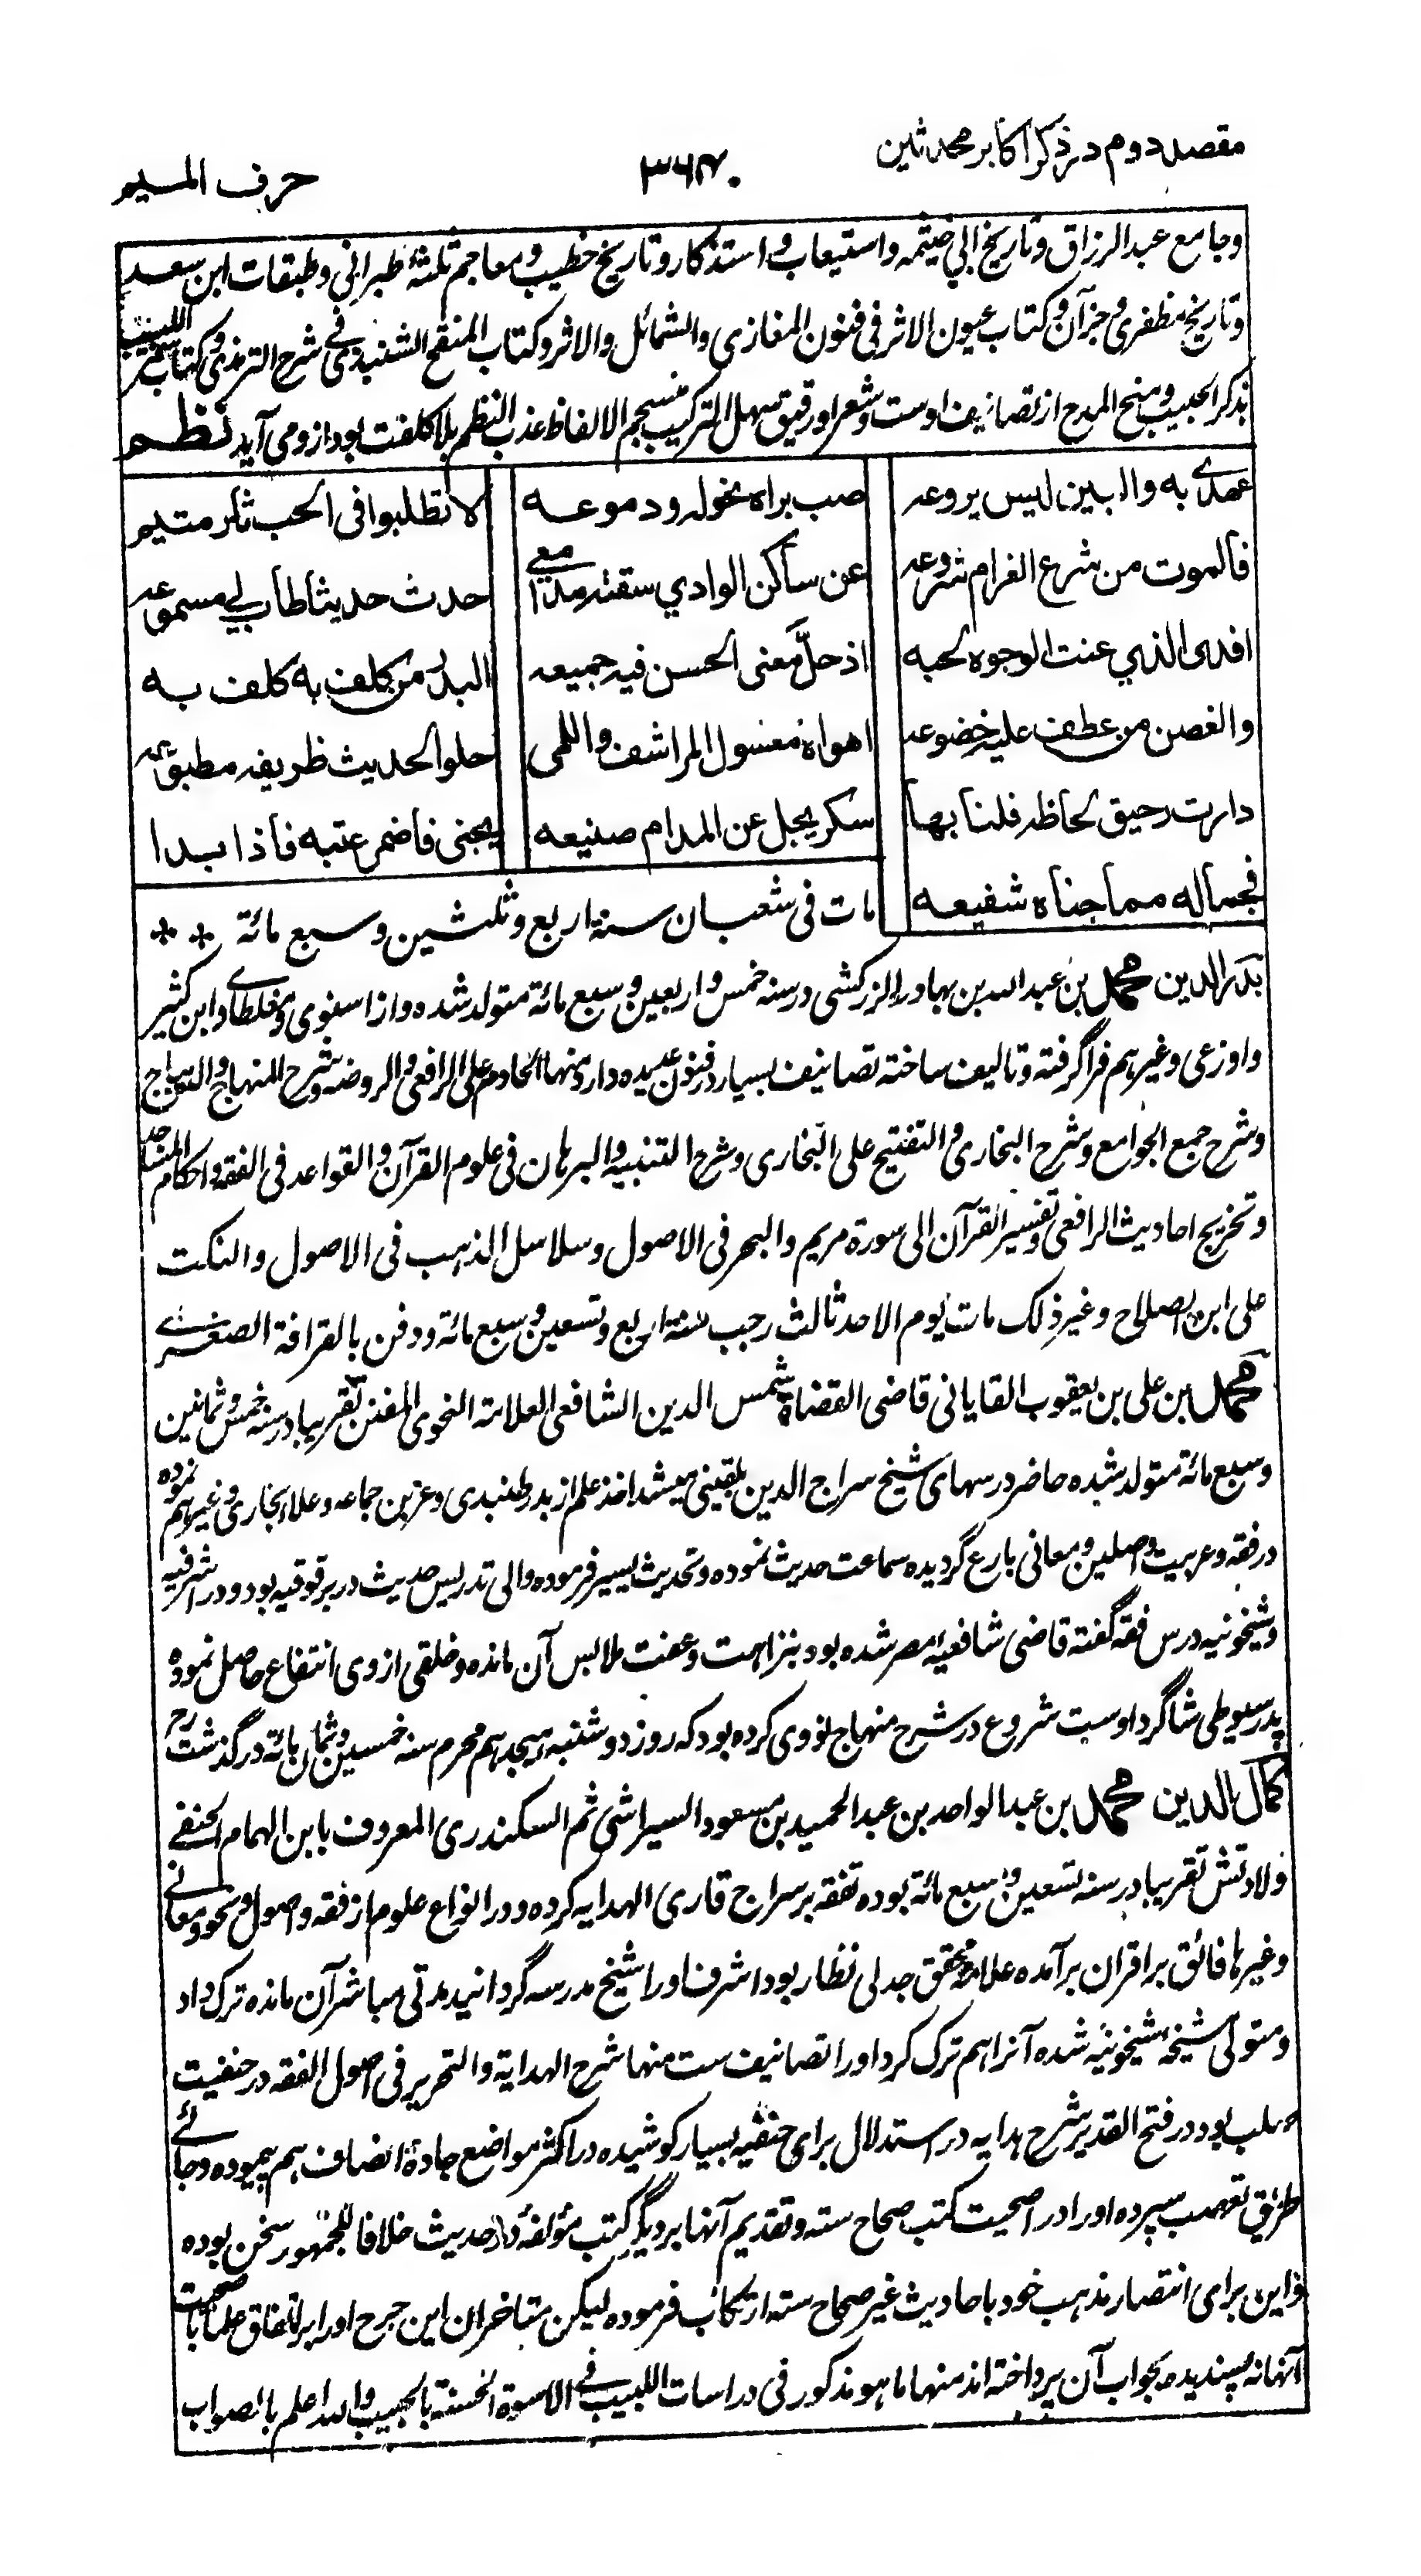 مقصد دوم در ذکر اکابر محدثین
۳۶۴
حرف المیم
وجامع عبد الرزاق وتاریخ ابی خیثمه واستیعاب واستذکار وتاریخ خطیب ومعاجم ثلثهٔ طبرانی وطبقات ابن سعد
وتاریخ مظفری وجزآن وکتاب عیون الاثر فی فنون المغازی والشمائل والاثر وکتاب المنقح الشذی فی شرح الترمذی وکتاب بشری اللبیب
بذکر الحبیب ومنح المدح از تصانیف اوست وشعر او رقیق سهل الترکیب منسجم الالفاظ عذب النظم بلا کلفت بود ازو می آید نظم
عهدی به والبین لیس یروعه
صب براه نحوله ودموعه
لا تطلبوا فی الحب ثار متیم
فالموت من شرع الغرام شروعه
عن ساکن الوادی سقته مدامعی
حدث حدیثا طاب لی مسموعه
افدی الذی عنت الوجوه لحبه
اذ حل معنی الحسن فیه جمیعه
البدر من کلف به کلف به
والغصن من عطف علیه خضوعه
اهواه معسول المراشف واللمی
حلو الحدیث ظریفه مطبوعه
دارت رحیق لحاظه فلنا بها
سکر یجل عن المدام صنیعه
یجنی فاضمر عتبه فاذا بدا
فجماله مما جناه شفیعه
مات فی شعبان سنة اربع وثلثین وسبع مائة **
بدر الدین محمد بن عبد الله بن بهادر الزرکشی در سنه خمس واربعین وسبع مائة متولد شده واز اسنوی ومغلطای وابن کثیر
واوزعی وغیرهم فرا گرفته وتالیف ساخته تصانیف بسیار در فنون عدیده دارد منها الخادم علی الرافعی والروضه وشرح المنهاج والدیباج
وشرح جمع الجوامع وشرح البخاری والتفتیح علی البخاری وشرح التنبیه والبرهان فی علوم القرآن والقواعد فی الفقه واحکام المساجد
وتخریج احادیث الرافعی وتفسیر القرآن الی سورة مریم والبحر فی الاصول وسلاسل الذهب فی الاصول والنکت
علی ابن الصلاح وغیر ذلک مات یوم الاحد ثالث رجب سنة اربع وتسعین وسبع مائة ودفن بالقرافة الصغری
محمد بن علی بن یعقوب القایانی قاضی القضاة شمس الدین الشافعی العلامة النحوی المفنن تقریبا در سنه خمس وثمانین
وسبع مائة متولد شده حاضر درسهای شیخ سراج الدین بلقینی میشد اخذ علم از بدر طنبدی وعز بن جماعه وعلاء البخاری وغیرهم نموده
در فقه وعربیت واصلین ومعانی بارع گردیده سماعت حدیث نموده وتحدیث یسیر فرموده والی تدریس حدیث در برقوقیه بود ودر اشرفیه
وشیخونیه درس فقه گفته قاضی شافعیهٔ مصر شده بود بنزاهت وعفت ملابس آن مانده وخلقی از وی انتفاع حاصل نموده
پدر سیوطی شاگرد اوست شروع در شرح منهاج نووی کرده بود که روز دوشنبه هیجدهم محرم سنه خمسین وثمان مائة درگذشت رح
کمال الدین محمد بن عبد الواحد بن عبد الحمید بن مسعود السیراشی ثم السکندری المعروف بابن الهمام الحنفی
ولادتش تقریبا در سنه تسعین وسبع مائة بوده تفقه بر سراج قاری الهدایه کرده ودر انواع علوم از فقه واصول ونحو ومعانی
وغیرها فائق بر اقران برآمده علامه محقق جدلی نظار بود اشرف او را شیخ مدرسه گردانید مدتی مباشر آن مانده ترک داد
ومتولی شیخهٔ شیخونیه شده آنرا هم ترک کرد او را تصانیف ست منها شرح الهدایة والتحریر فی اصول الفقه در حنفیت
صلب بود در فتح القدیر شرح هدایه در استدلال برای حنفیه بسیار کوشیده در اکثر مواضع جادهٔ انصاف هم پیموده وجائے
طریق تعصب سپرده او را در اصحیت کتب صحاح سته وتقدیم آنها بر دیگر کتب مؤلفهٔ در حدیث خلافا للجمهور سخن بوده
واین برای انتصار مذهب خود باحادیث غیر صحاح سته ارتکاب فرموده لیکن متاخران این جرح او را بر اتفاق علما با صحت
آنها نه پسندیده بجواب آن پرداخته اند منها ما هو مذکور فی دراسات اللبیب فی الاسوة الحسنة بالحبیب والله اعلم بالصواب